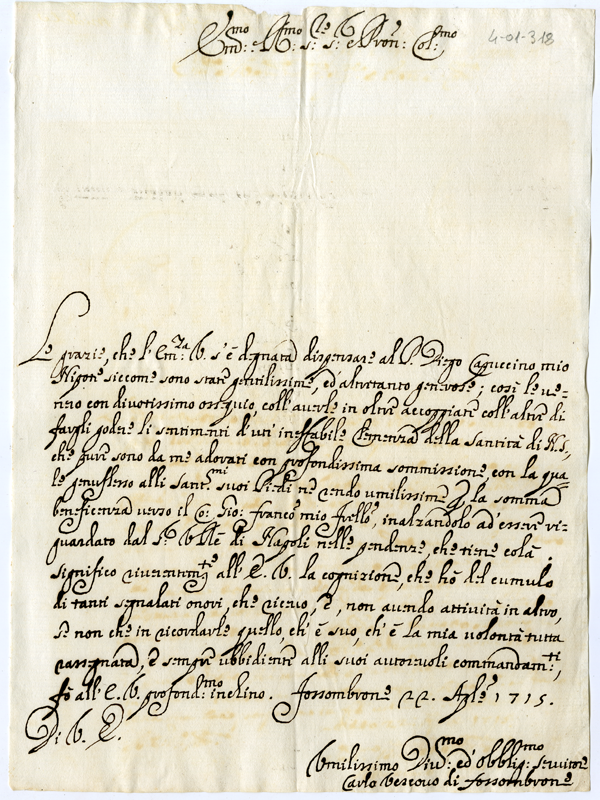 Em:mo e R:mo Sig:re Sig:re e Pron: Col:mo
4-01-318
Le grazie, che l'Em:za V. s'è degnata dispensare al P. Diego Capuccino mio
Nipote siccome sono state gentilissime, ed' altretanto generose; così le ve-
nero con divotissimo ossequio, coll'averle in oltre accoppiate coll'altre di
fargli godere li sentimenti d'un' ineffabile Clemenza della Santità di N. S.,
che pure sono da me adorati con profondissima sommissione, con la qua-
le genuflesso alli Sant:mi suoi Piedi ne rendo umilissime p la somma
beneficenza verso il Co: Gio: Franco mio Frello, inalzandolo ad' essere ri-
guardato dal Sr. V Rè di Napoli nelle pendenze, che tiene colà.
significo riverentemte all'E. V. la cognizione, che hò del cumulo
di tanti segnalati onori, che ricevo, e, non avendo attività in altro,
se non che in ricordarle quello, ch'è suo, ch'è la mia volontà tutta
rassegnata, e sempre ubbidiente alli suoi autorevoli commandam:ti,
fò all'E. V. profond:mo inchino. Fossombrone 22. Aple 1715.
Di V. E.
Umilissimo Div:mo ed' obblig:mo Servitore
Carlo Vescovo di Fossombrone